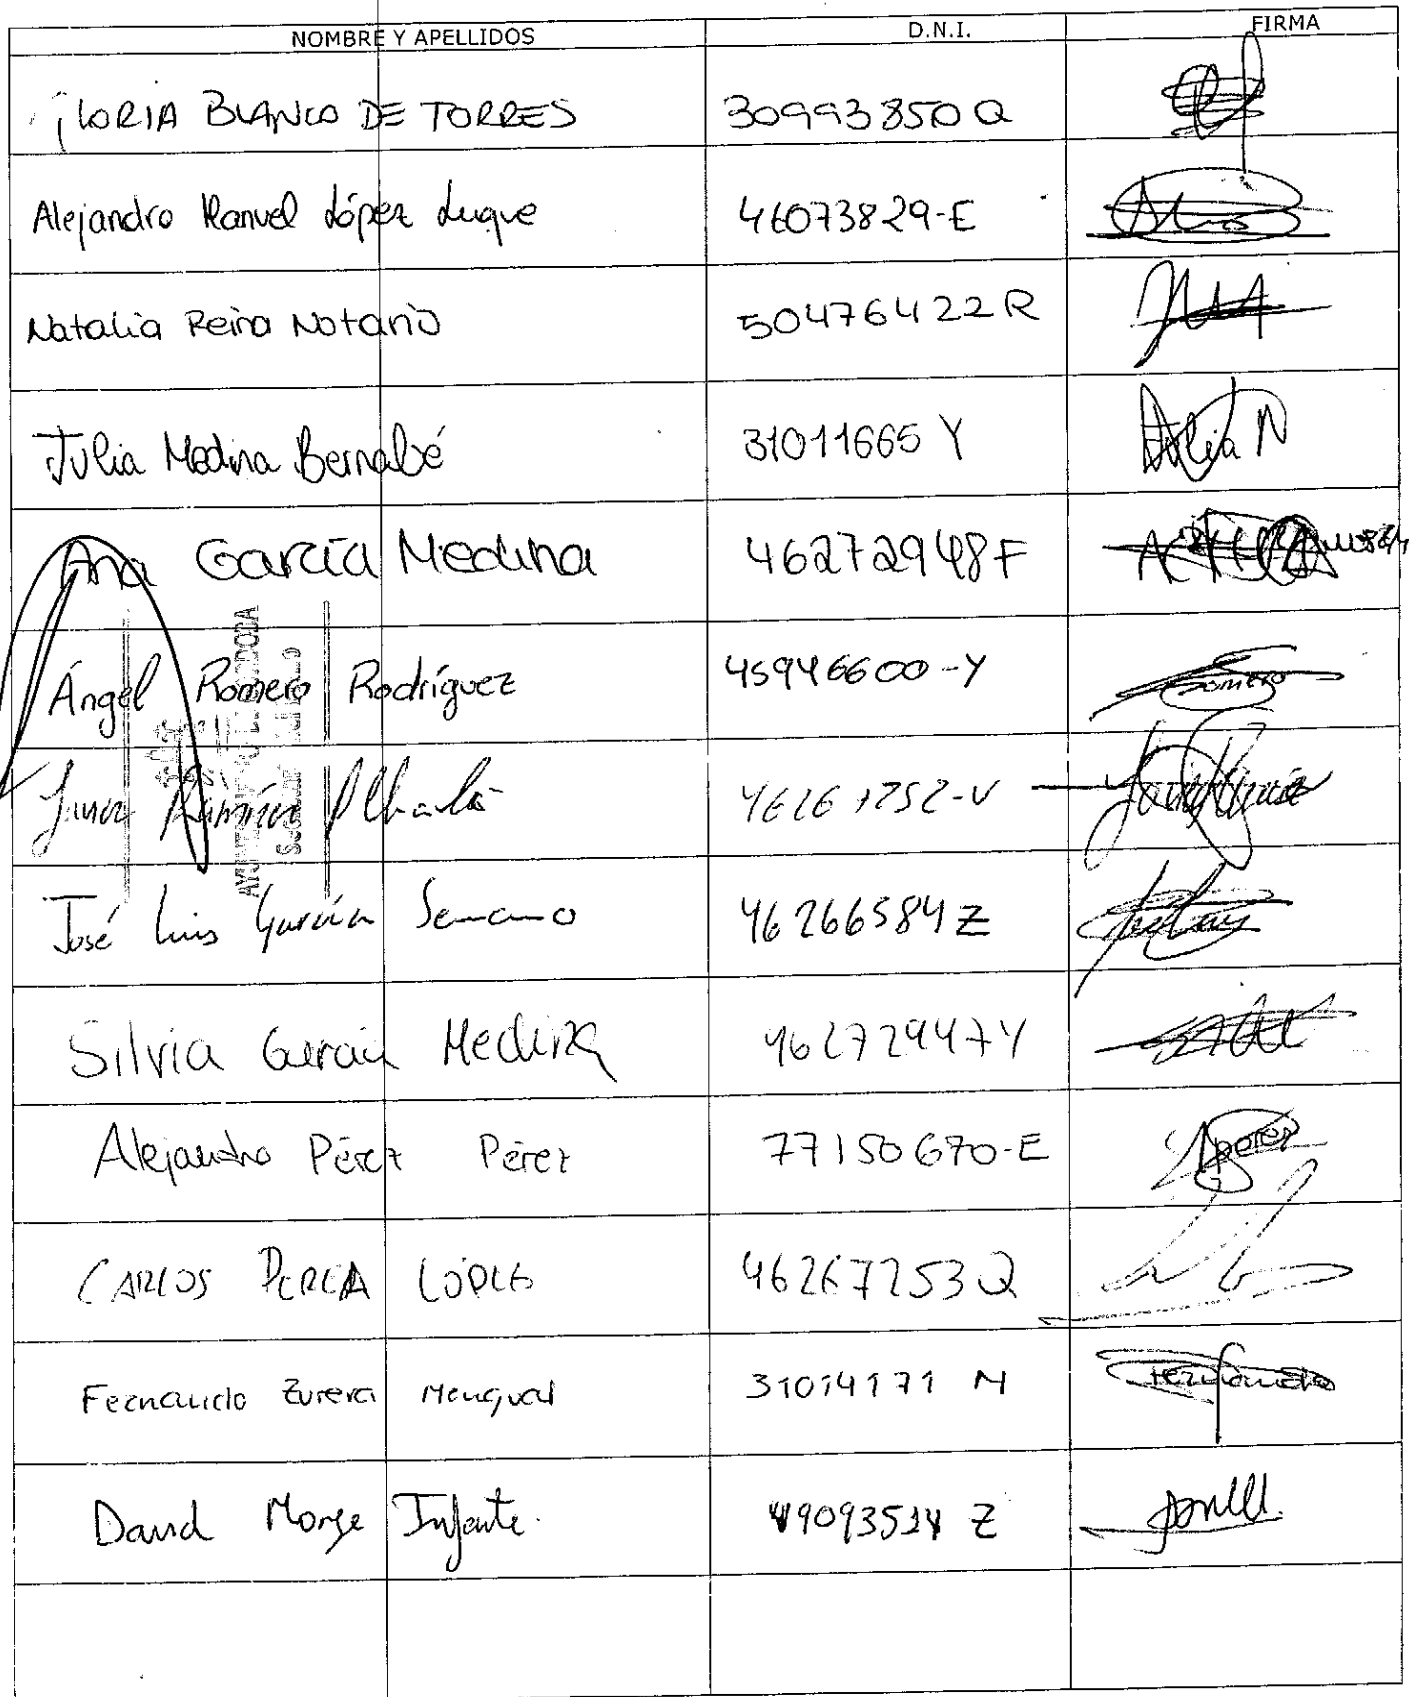 NOMBRE Y APELLIDOS D.N.I. FIRMA
GLORIA BLANCO DE TORRES 30993850 Q
Alejandro Manuel López Luque 46073829-E
Natalia Reina Notario 50476422 R
Julia Medina Bernabé 31011665 Y Julia M
Ana García Medina 46272948 F
Ángel Romero Rodríguez 45946600-Y Romero
Ramírez
José Luis García Serrano 46266584 Z
Silvia García Medina 46272947 Y
Alejandro Pérez Pérez 77150670-E
CARLOS PEREA LÓPEZ 46267253 Q
Fernando Zurera Mengual 31014171 M Fernando
David Monge Infante. Z